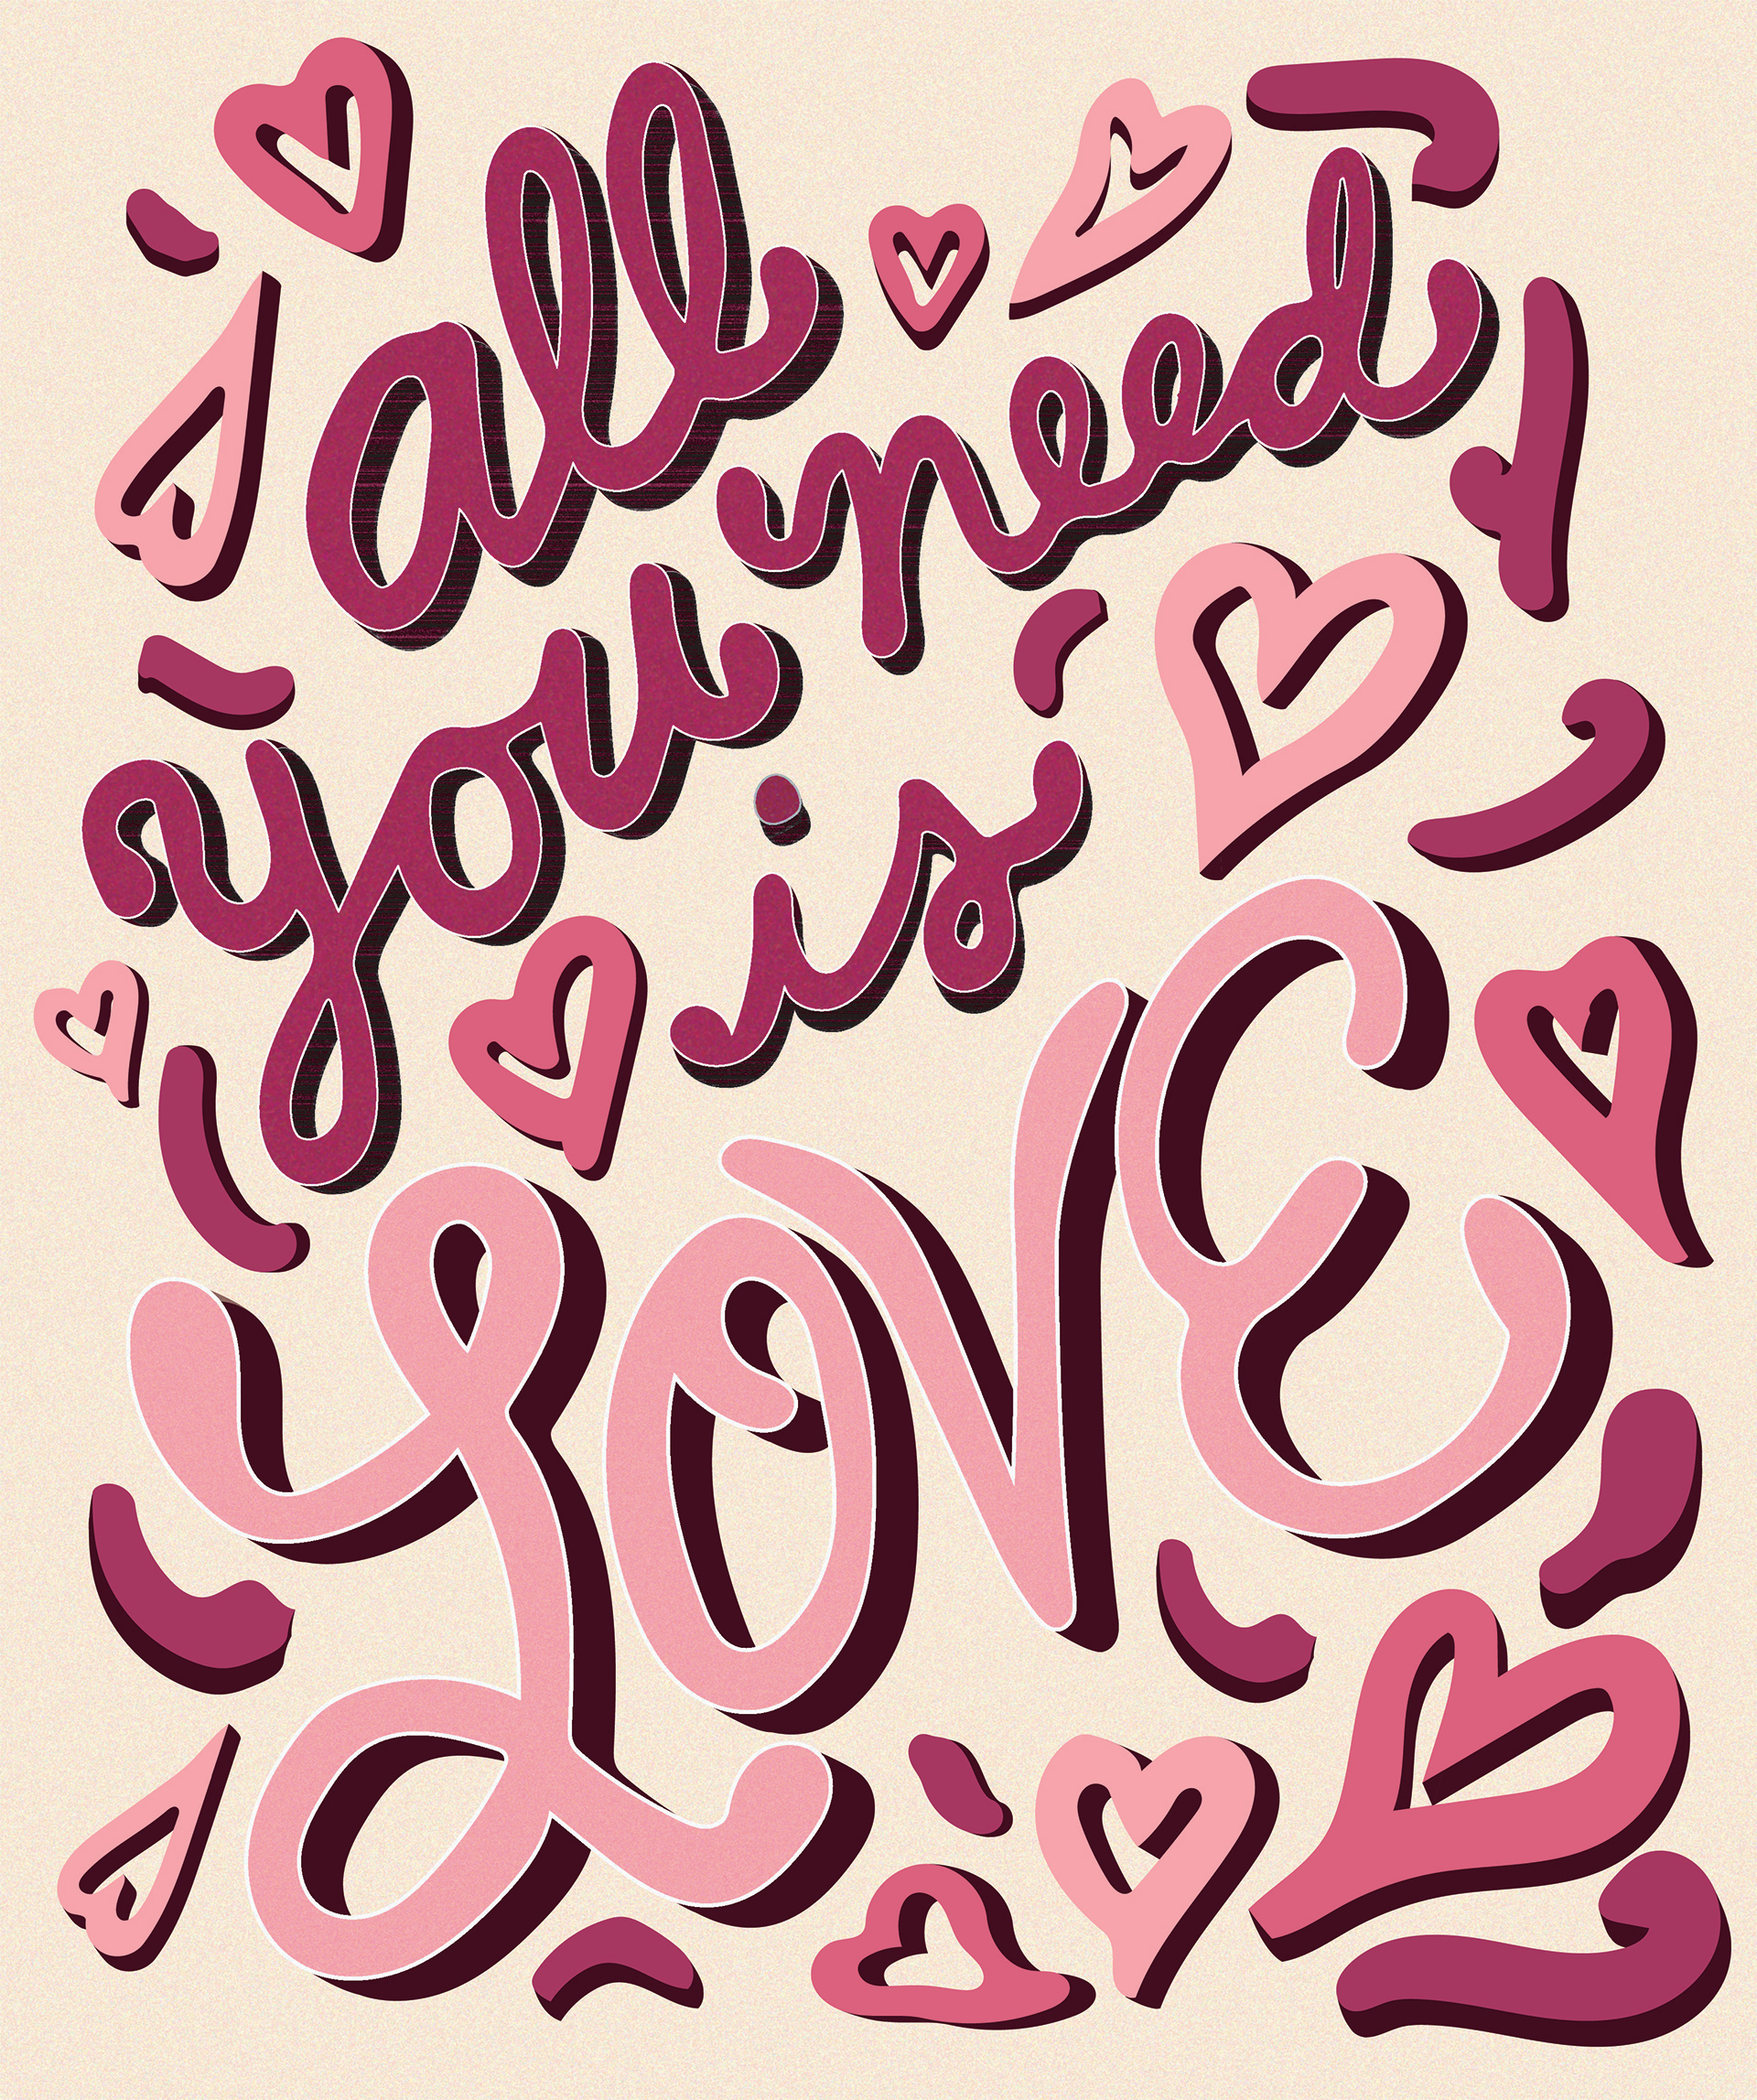 all
need
you
is
LOVE